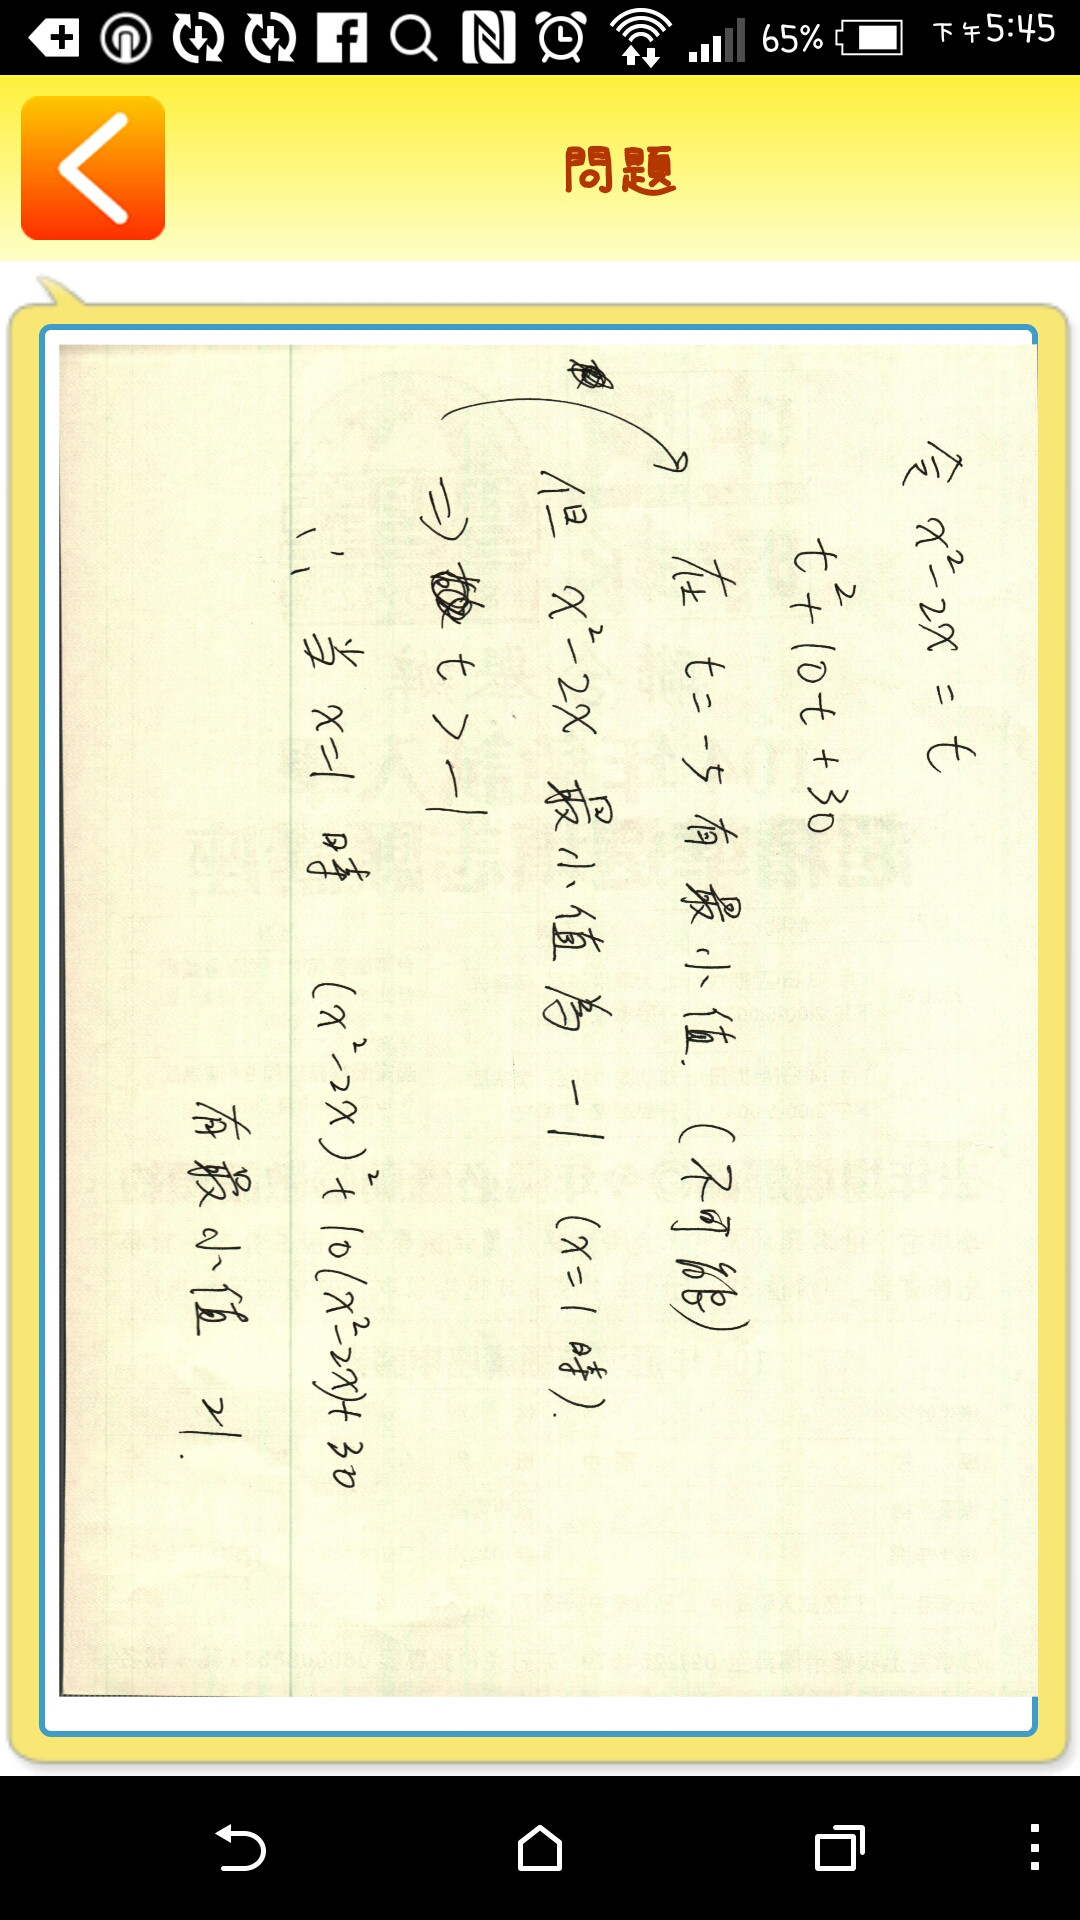 65% 下午5:45
問題
令 x²-2x = t
t²+10t+30
在 t=-5有最小值. (不可能)
但 x²-2x 最小值為 -1 (x=1時).
⇒ t > -1
∴ 當 x=1 時 (x²-2x)²+10(x²-2x)+30
有最小值 21.